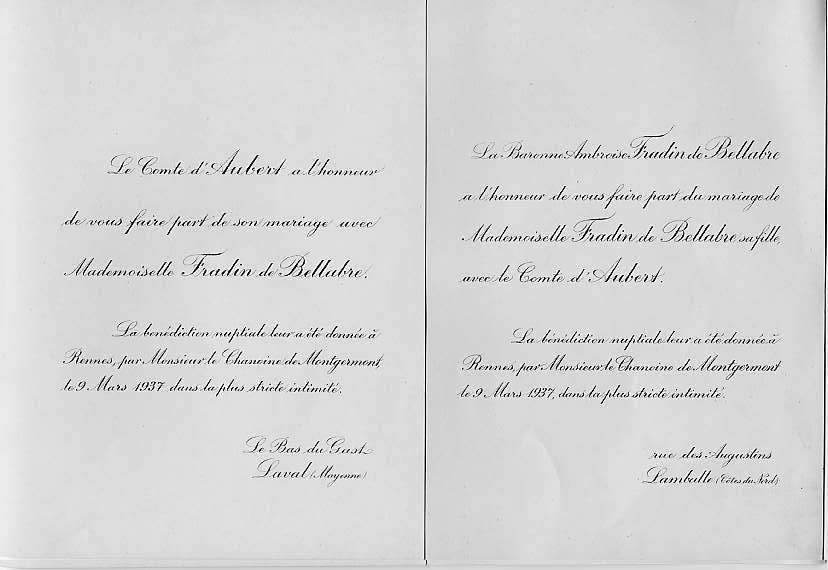 Le Comte d'Aubert a l'honneur
de vous faire part de son mariage avec
Mademoiselle Fradin de Bellabre.
La bénédiction nuptiale leur a été donnée à
Rennes, par Monsieur le Chanoine de Montgermont,
le 9 Mars 1937 dans la plus stricte intimité.
Le Bas du Gast
Laval (Mayenne)
La Baronne Ambroise Fradin de Bellabre
a l'honneur de vous faire part du mariage de
Mademoiselle Fradin de Bellabre sa fille,
avec le Comte d'Aubert.
La bénédiction nuptiale leur a été donnée à
Rennes, par Monsieur le Chanoine de Montgermont
le 9 Mars 1937, dans la plus stricte intimité.
rue des Augustins
Lamballe (Côtes du Nord)